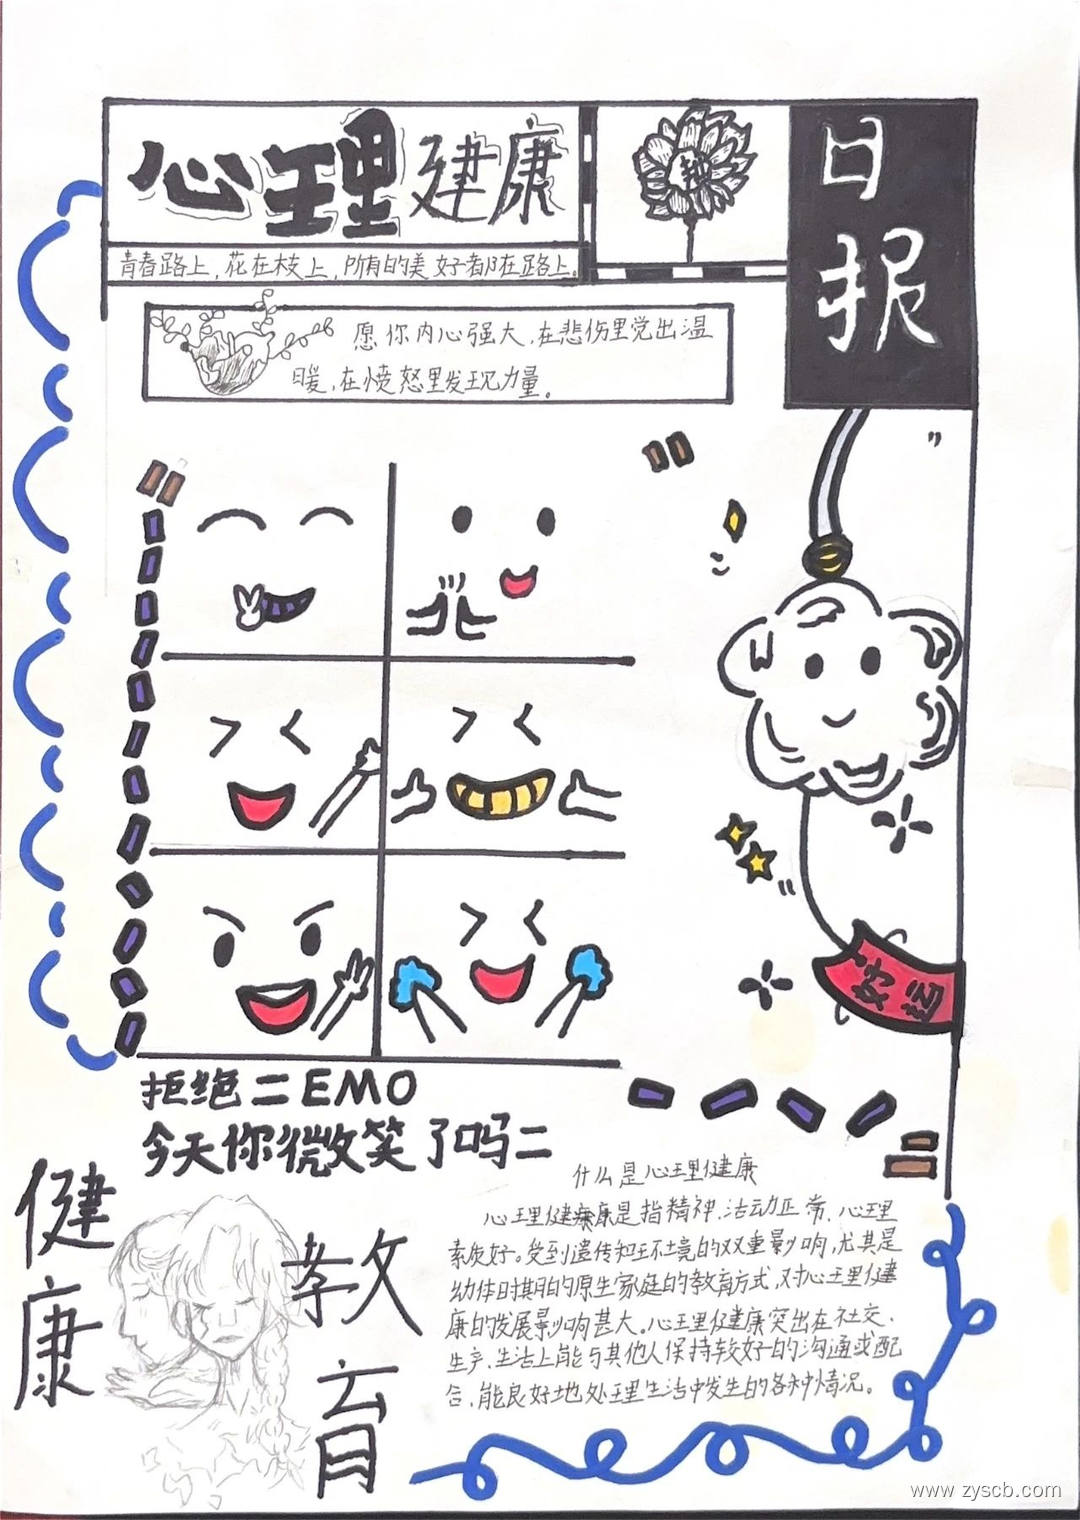 心理健康
日报
青春路上,花在枝上,所有的美好都在路上。
愿你内心强大,在悲伤里觉出温
暖,在愤怒里发现力量。
好运
拒绝二EMO
今天你微笑了吗二
健康
教育
什么是心理健康
心理健康是指精神、活动正常、心理
素质好。受到遗传和环境的双重影响,尤其是
幼体时期的原生家庭的教育方式,对心理健
康的发展影响甚大。心理健康突出在社交、
生产、生活上能与其他人保持较好的沟通或配
合,能良好地处理生活中发生的各种情况。
www.zyscb.com